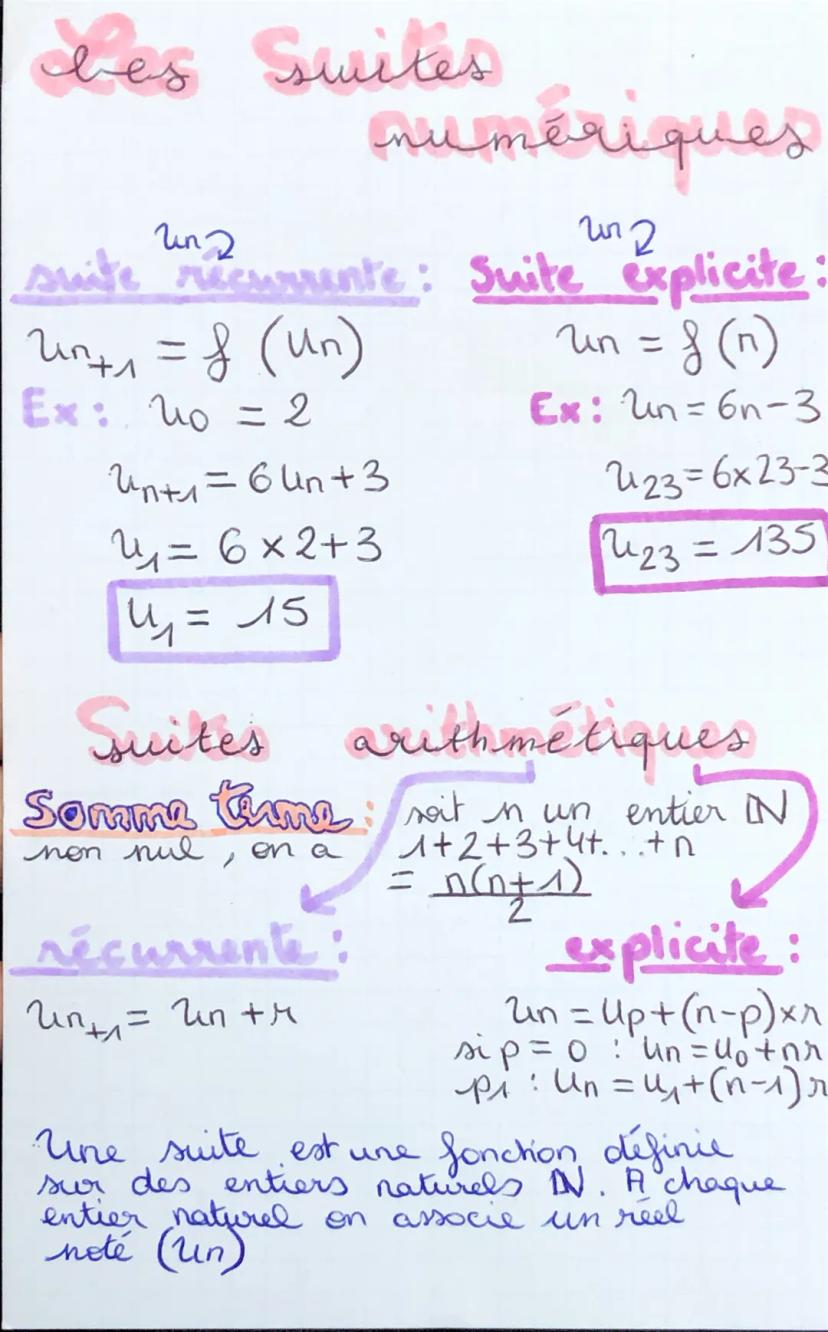 Les Suites
numériques
Un
suite récurrente :
Un+1 = f (Un)
Ex : U0 = 2
Un+1 = 6Un+3
U1 = 6 x 2+3
U1 = 15
Un
Suite explicite :
Un = f(n)
Ex : Un = 6n-3
U23=6x23-3
U23 = 135
Suites arithmétiques
Somme terme : soit n un entier IN
non nul, on a 1+2+3+4+...+n
= n(n+1)/2
récurrente :
Un+1 = Un +r
explicite :
Un = Up+(n-p)xr
si p = 0 : Un = U0+nr
p1 : Un = U1+(n-1)r
Une suite est une fonction définie
sur des entiers naturels IN. A chaque
entier naturel on associe un réel
noté (Un)